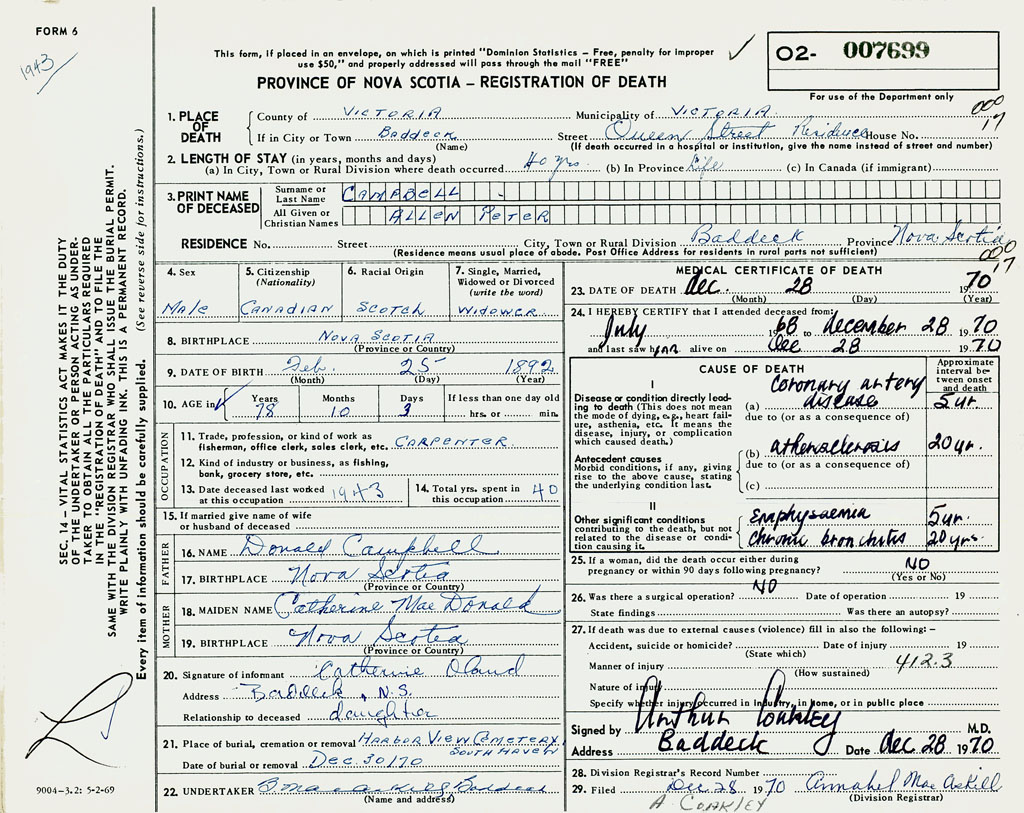 FORM 6
1943
This form, if placed in an envelope, on which is printed "Dominion Statistics – Free, penalty for improper
use $50," and properly addressed will pass through the mail "FREE"
✓
O2- 007699
For use of the Department only
PROVINCE OF NOVA SCOTIA – REGISTRATION OF DEATH
000
17
1. PLACE OF DEATH
County of VICTORIA Municipality of VICTORIA
If in City or Town Baddeck Street Queen Street Residence House No.
(Name) (If death occurred in a hospital or institution, give the name instead of street and number)
2. LENGTH OF STAY (in years, months and days)
(a) In City, Town or Rural Division where death occurred 40 yrs. (b) In Province Life (c) In Canada (if immigrant)
3. PRINT NAME OF DECEASED
Surname or Last Name CAMPBELL
All Given or Christian Names ALLEN PETER
RESIDENCE No. Street City, Town or Rural Division Baddeck Province Nova Scotia
(Residence means usual place of abode. Post Office Address for residents in rural parts not sufficient)
000
17
4. Sex
Male
5. Citizenship (Nationality)
CANADIAN
6. Racial Origin
SCOTCH
7. Single, Married, Widowed or Divorced (write the word)
WIDOWER
8. BIRTHPLACE NOVA SCOTIA
(Province or Country)
9. DATE OF BIRTH Feb. 25 1892
(Month) (Day) (Year)
10. AGE in Years 78 Months 10 Days 3 If less than one day old hrs. or min.
OCCUPATION
11. Trade, profession, or kind of work as
fisherman, office clerk, sales clerk, etc. CARPENTER
12. Kind of industry or business, as fishing,
bank, grocery store, etc.
13. Date deceased last worked at this occupation 1943
14. Total yrs. spent in this occupation 40
15. If married give name of wife
or husband of deceased
FATHER
16. NAME Donald Campbell
17. BIRTHPLACE Nova Scotia
(Province or Country)
MOTHER
18. MAIDEN NAME Catherine MacDonald
19. BIRTHPLACE Nova Scotia
(Province or Country)
20. Signature of informant Catherine
Address Baddeck, N.S.
Relationship to deceased daughter
21. Place of burial, cremation or removal HARBOR VIEW CEMETERY
SOUTH HAVEN
Date of burial or removal Dec 30/70
22. UNDERTAKER Baddeck
(Name and address)
MEDICAL CERTIFICATE OF DEATH
23. DATE OF DEATH Dec. 28 1970
(Month) (Day) (Year)
24. I HEREBY CERTIFY that I attended deceased from:
July 1968 to december 28 1970
and last saw him alive on Dec 28 1970
CAUSE OF DEATH
Approximate interval between onset and death
I
Disease or condition directly leading to death (This does not mean the mode of dying, e.g., heart failure, asthenia, etc. It means the disease, injury, or complication which caused death.)
(a) Coronary artery disease 5 yr.
due to (or as a consequence of)
Antecedent causes
Morbid conditions, if any, giving rise to the above cause, stating the underlying condition last.
(b) atherosclerosis 20 yr.
due to (or as a consequence of)
(c)
II
Other significant conditions contributing to the death, but not related to the disease or condition causing it.
Emphysaemia 5 yr.
Chronic bronchitis 20 yrs.
25. If a woman, did the death occur either during
pregnancy or within 90 days following pregnancy? NO
(Yes or No)
26. Was there a surgical operation? NO Date of operation 19
State findings Was there an autopsy?
27. If death was due to external causes (violence) fill in also the following: –
Accident, suicide or homicide? Date of injury 19
(State which)
Manner of injury 412.3
(How sustained)
Nature of injury
Specify whether injury occurred in industry, in home, or in public place
Signed by Arthur Coakley M.D.
Address Baddeck Date Dec 28 1970
28. Division Registrar's Record Number
29. Filed Dec 28 1970 Annabel MacAskill
(Division Registrar)
A COAKLEY
SEC. 14 – VITAL STATISTICS ACT MAKES IT THE DUTY
OF THE UNDERTAKER OR PERSON ACTING AS UNDER-
TAKER TO OBTAIN ALL THE PARTICULARS REQUIRED
IN THE "REGISTRATION OF DEATH" AND TO FILE THE
SAME WITH THE DIVISION REGISTRAR WHO SHALL ISSUE THE BURIAL PERMIT.
WRITE PLAINLY WITH UNFADING INK. THIS IS A PERMANENT RECORD.
Every item of information should be carefully supplied. (See reverse side for instructions.)
9004-3.2: 5-2-69